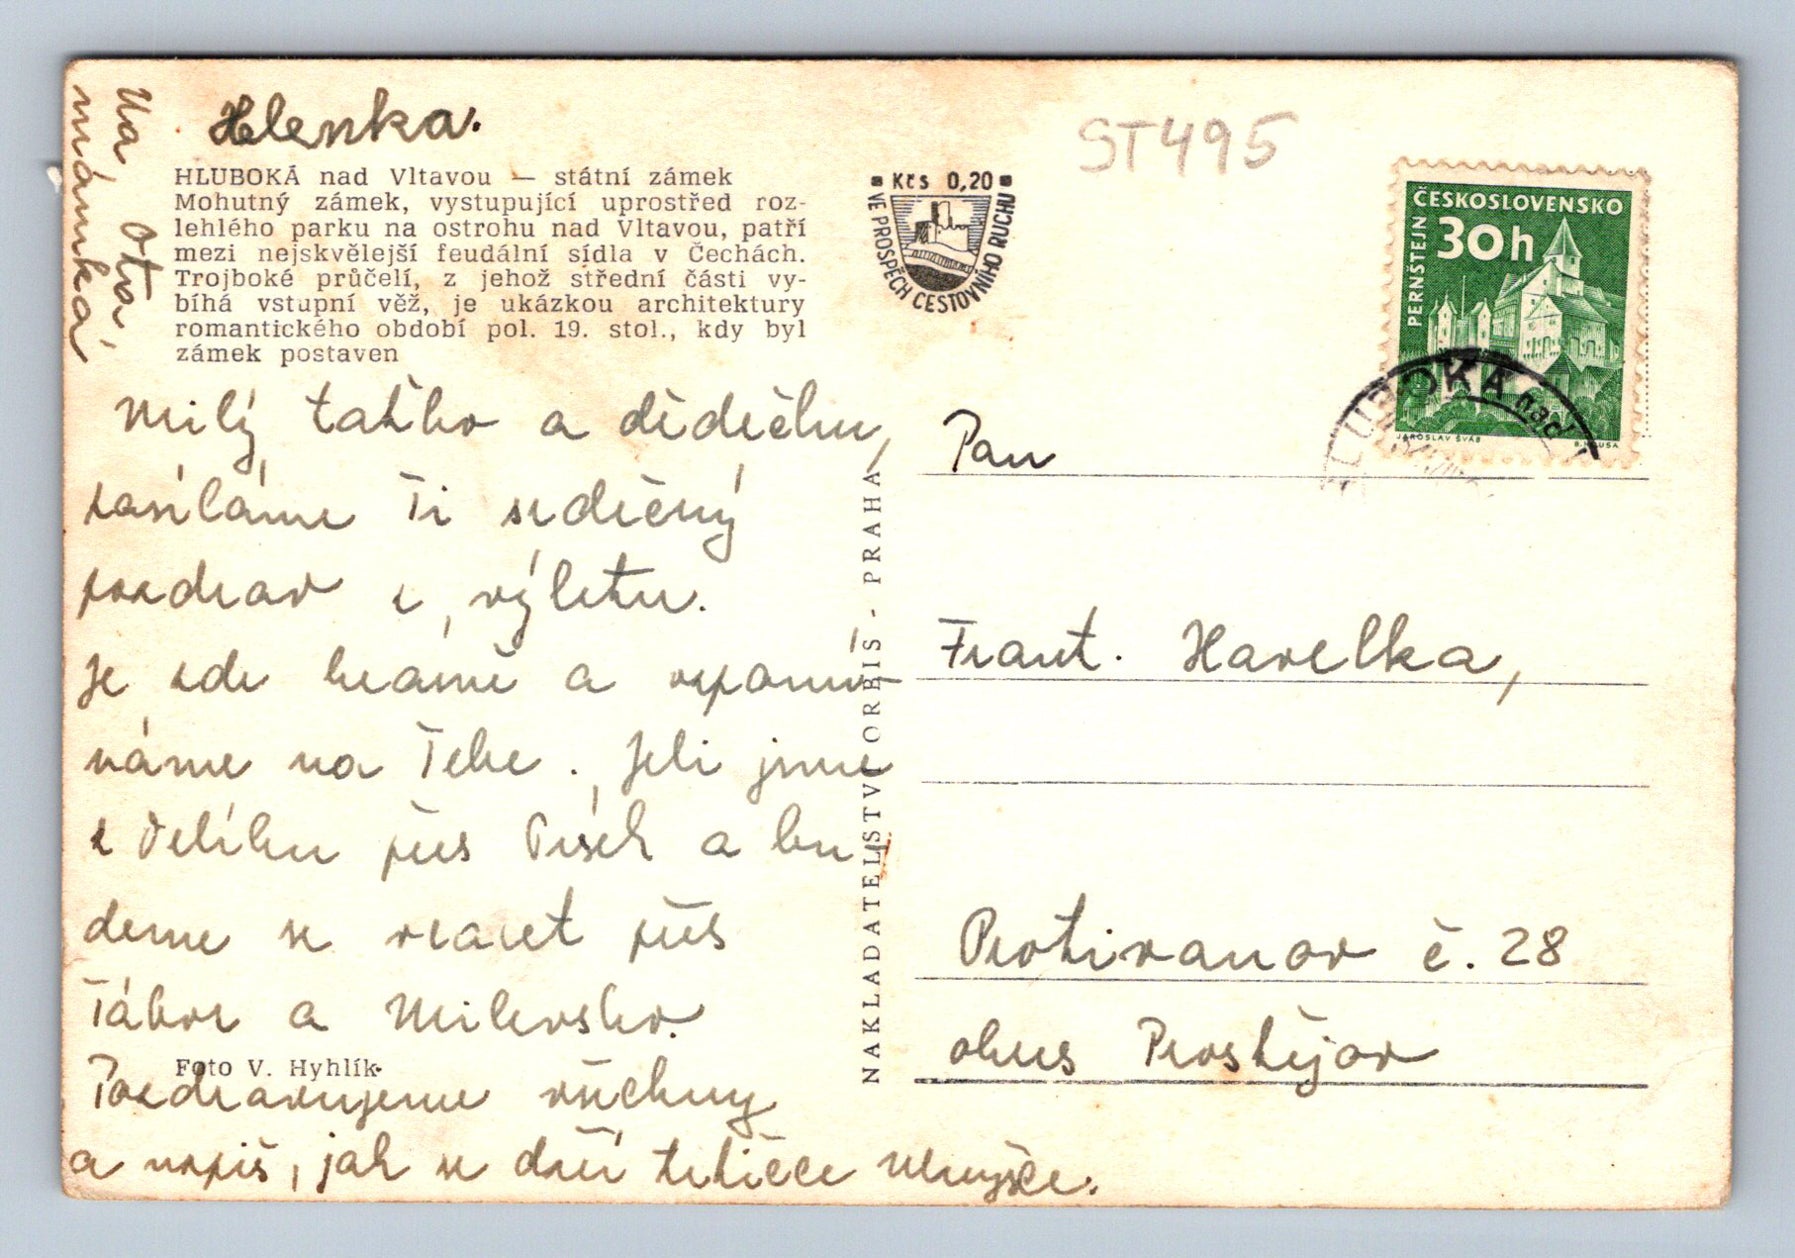 Helenka.
Va, Ota,
mámka
HLUBOKÁ nad Vltavou — státní zámek
Mohutný zámek, vystupující uprostřed roz-
lehlého parku na ostrohu nad Vltavou, patří
mezi nejskvělejší feudální sídla v Čechách.
Trojboké průčelí, z jehož střední části vy-
bíhá vstupní věž, je ukázkou architektury
romantického období pol. 19. stol., kdy byl
zámek postaven
Milý taťko a dědečku,
zasíláme Ti srdečný
pozdrav z výletu.
Je zde krásně a vzpomí-
náme na Tebe. Jeli jsme
z přes Písek a bu-
deme se vracet přes
Tábor a Milevsko.
Foto V. Hyhlík
Pozdravujeme všechny
a napiš, jak se daří tetičce
NAKLADATELSTVÍ ORBIS - PRAHA
Kčs 0,20
VE PROSPĚCH CESTOVNÍHO RUCHU
ST495
ČESKOSLOVENSKO
30h
PERNŠTEJN
JAROSLAV ŠVÁB
HLUBOKÁ nad
Pan
Frant. Havelka,
Protivanov č. 28
okres Prostějov